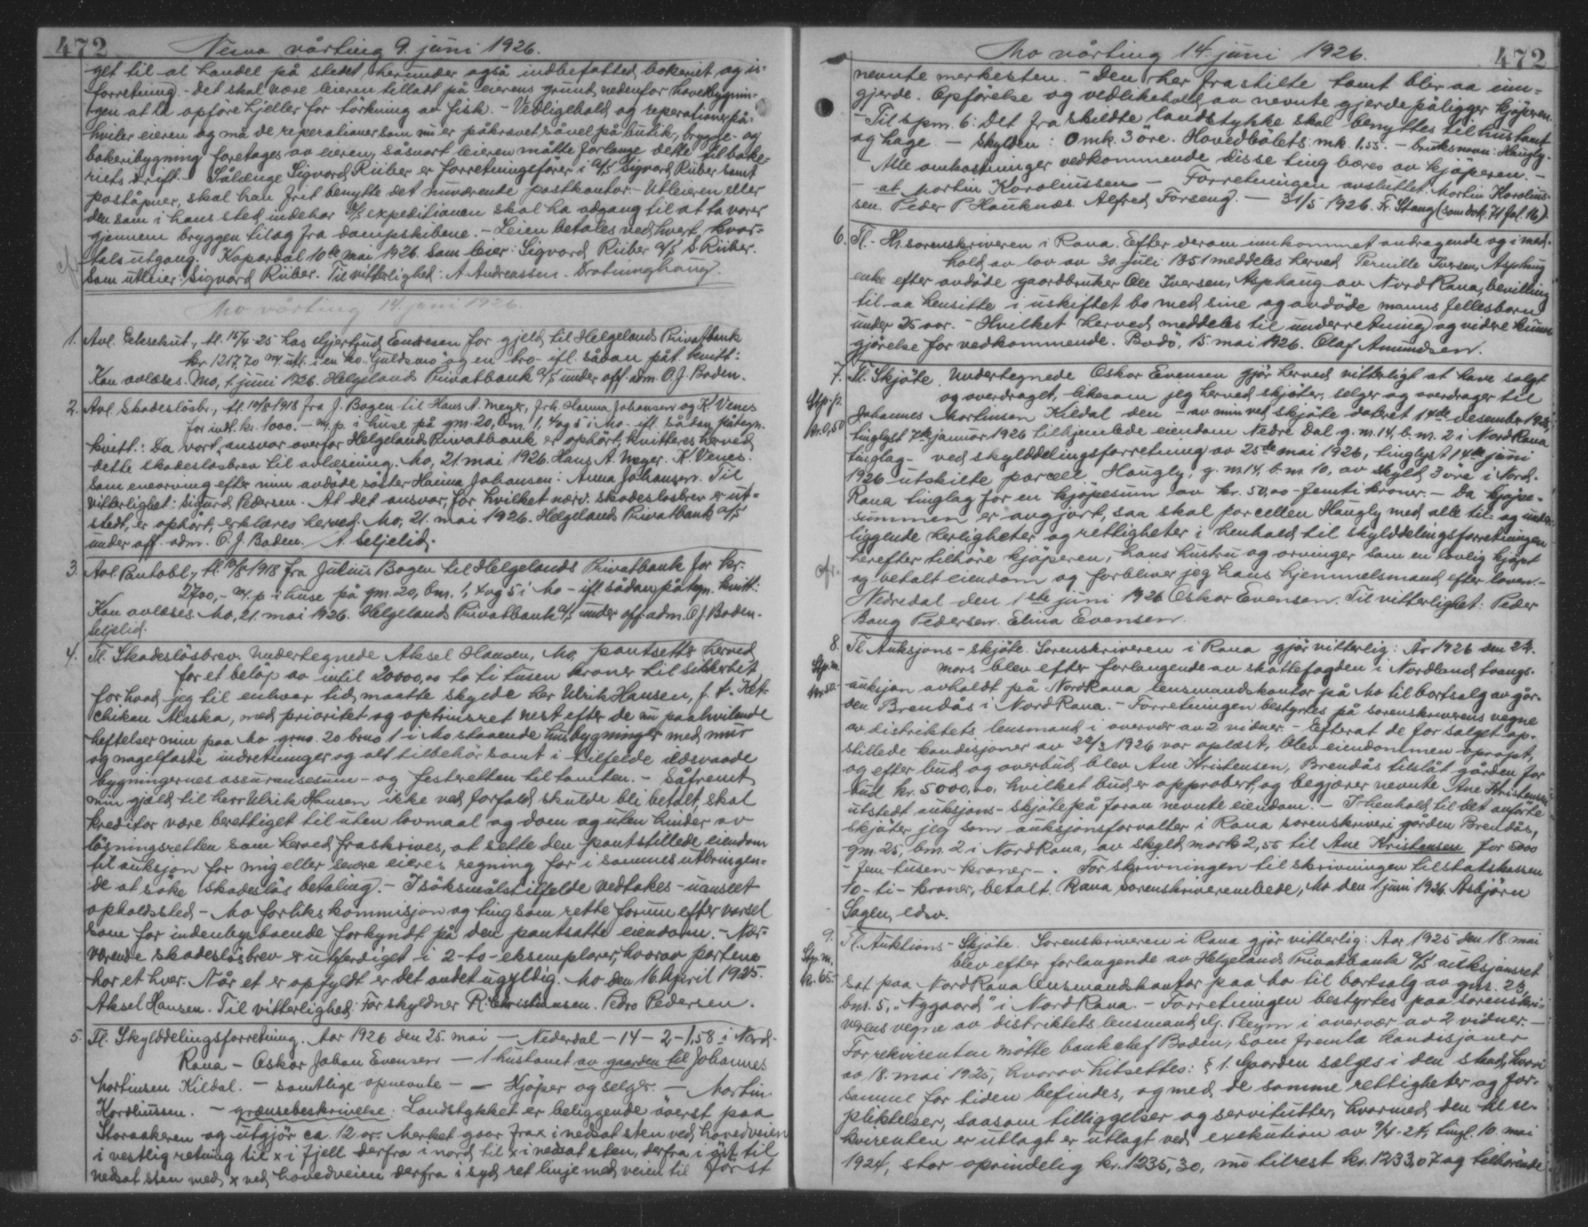 472 Nesna vårting 9. juni 1926.
get til at handel på stedet, herunder også indbefatted bakeriet og is-
forretning. - Det skal være leieren tilladt på eierens grund nedenfor hovedbygnin-
gen at la opføre hjeller for törkning av fisk. - Vedligehold og reperationer på-
hviler eieren og må de reperationer som nu er påkrævet såvel på butik, brygge- og
bakeribygning foretages av eieren, såsnart leieren måtte forlange dette til bake-
riets drift. Sålænge Sigvard Rüber er forretningsfører i A/S Sigvard Rüber samt
poståpner, skal han frit benytte det nuværende postkontor. - Utleieren eller
den som i hans sted indehar D/S expeditionen skal ha adgang til at ta varer
gjennem bryggen til og fra dampskibene. - Leien betales ved hvert kvar-
tals utgang. Kopardal 10de mai 1926. Som leier: Sigvard Rüber A/S S. Rüber.
Som utleier: Sigvard Rüber. Til vitterlighed: A. Andreassen. Drotninghaug.
Mo vårting 14 juni 1926.
1. Avl. Eksekut., tl. 15/4-25 hos Hjertrud Enersen for gjeld til Helgelands Privatbank
kr. 1217,70 m/ utl. i en ko "Guldsmo" og en ko- ifl. sådan påt. kvitt:
Kan avlæses. Mo, 1 juni 1926. Helgelands Privatbank A/S under off. adm. O. J. Boden.
2. Avl Skadeslösbr., tl. 10/8 1918 fra J. Bogen til Hans A. Meyer, Frk. Hanna Johansen og K. Venes
for indt. kr. 1000. - m. p. i huse på gm. 20, bm. 1, 4 og 5 i Mo - ifl. sådan påtegn.
kvitt: Da vort ansvar overfor Helgelands Privatbank er ophört, kvitteres herved
dette skadeslösbrev til avlæsning. Mo, 21 mai 1926. Hans A. Meyer. K. Venes.
Som enearving efter min avdöde söster Hanna Johansen: Anna Johansen. Til
vitterlighet: Sigurd Pedersen. At det ansvar, for hvilket nærv. skadeslosbrev er ut-
stedt, er ophört, erklæres herved. Mo, 21. mai 1926. Helgelands Privatbank A/S
under off. adm. O. J. Boden. A. Seljelid.
3. Avl Pantobl., tl. 10/8 1918 fra Julius Bogen til Helgelands Privatbank for kr.
2700,- m. p. i huse på gm. 20, bm. 1, 4 og 5 i Mo - ifl. sådan påtegn. kvitt:
Kan avlæses. Mo, 21. mai 1926. Helgelands Privatbank A/S under off. adm. O. J. Boden.
Seljelid.
4. Tl. Skadeslösbrev. Undertegnede Aksel Hansen, Mo, pantsetter herved
for et belöp av intil 20000,00 to ti tusen kroner til sikkerhet
for hvad jeg til enhver tid maatte skylde hr Ulrik Hansen, f. t. Ket-
chikan Alaska, med prioritet og optrinsret nest efter de nu paahvilende
heftelser min paa Mo grno. 20 brno 1 i Mo staaende husbygninger med mur
og nagelfaste indretninger og alt tilbehör samt i tilfelde ildsvaade
bygningernes assuransesum - og festeretten til tomten. - Såfremt
min gjæld til herr Ulrik Hansen ikke ved forfald skulde bli betalt, skal
kreditor være berettiget til uten lovmaal og dom og uten hinder av
lösningsretten som herved fraskrives, at sette den pantstillede eiendom
til auksjon for mig eller senere eieres regning for i sammes utbringen-
de at söke skadeslös betaling. - I söksmålstilfelde vedtakes - uanseet
opholdssted - Mo forlikskommisjon og ting som rette forum efter varsel
som for indenbys boende forkyndt på den pantsatte eiendom. - Nær-
værende skadeslösbrev er utferdiget i 2-to- eksemplarer, hvorav partene
har et hver. Når et er opfyldt er det andet ugyldig. Mo den 16 April 1925.
Aksel Hansen. Til vitterlighed for skyldner R. Christensen. Pedro Pedersen.
5. Tl. Skylddelingsforretning. Aar 1926 den 25. mai - Nederdal - 14 - 2 - 1,58 i Nord-
Rana - Oskar Johan Evensen - 1 hustomt av gaarden til Johannes
Martinsen Kildal. - samtlige opnevnte - - Kjöper og selger - Martin
Karoliussen. - grænsebeskrivelse: Landstykket er beliggende överst paa
Storaakeren og utgjör ca 12 ar. Merket gaar fra x i nedsat sten ved hovedveien
i vestlig retning til x i fjell derfra i nord til x i nedsat sten, derfra i öst til
nedsat sten med x ved hovedveien derfra i syd ret linje med veien til först
Mo vårting 14 juni 1926. 472
nevnte merkesten. - Den her frastilte tomt blir aa inn-
gjerde. Opförelse og vedlikehold av nevnte gjerde påligger kjöperen.
- Til spm. 6: Det fraskildte landstykke skal benyttes til hustomt
og hage - Skylden: 0 mk. 3 öre. Hovedbölets: mk. 1,55. - bruksnavn: Haugly.
- Alle omkostninger vedkommende disse ting bæres av kjöperen. -
- at Martin Karoliussen - Forretningen avsluttet. Martin Karolius-
sen. Peder P Hauknes. Alfred Forseng. - 31/5 1926. Fr. Stang (som dok. 71 fol. 16).
6. Tl. - Hr. sorenskriveren i Rana. Efter derom innkommet andragende og i med-
hold av lov av 30 Juli 1851 meddeles herved Pernille Iversen, Asphaug
enke efter avdöde gaardbruker Ole Iversen, Asphaug av Nord Rana, bevilling
til aa hensitte i uskiftet bo med sine og avdöde manns fellesbarn
under 25 aar. - Hvilket herved meddeles til underretning og videre kunn-
gjörelse for vedkommende. Bodö, 15 mai 1926. Olaf Amundsen.
7. Tl. Skjöte. Undertegnede Oskar Evensen gjör herved vitterligt at have solgt
Stp. p. og overdraget, likesom jeg herved skjöter, selger og overdrager til
kr. 0,50 Johannes Martinsen Kildal den - av min ved skjöte datert 14de desember 1925,
tinglyst 7de januar 1926 tilhjemlede eiendom Nedre Dal g. nr. 14, b. nr. 2 i Nord Rana
tinglag - ved skylddelingsforretning av 25de mai 1926, tinglyst 14de juni
1926 utskilte parcel, Haugly g. nr. 14, b. nr. 10, av skyld 3 öre i Nord-
Rana tinglag for en kjöpesum av kr. 50,00 - femti kroner. - Da kjöpe-
summen er avgjort, saa skal parcellen Haugly med alle til- og under-
liggende herligheter og rettigheter i henhold til skylddelingsforretningen
herefter tilhöre kjöperen, hans hustru og arvinger som en lovlig kjöpt
og betalt eiendom og forbliver jeg hans hjemmelsmand efter loven. -
Nedredal den 1ste juni 1926 Oskar Evensen. Til vitterlighet: Peder
Bang Pedersen. Elina Evensen.
8. Tl. Auksjons - skjöte. Sorenskriveren i Rana gjör vitterlig: År 1926 den 24.
Stp. m. mars blev efter forlangende av skattefogden i Nordland tvangs-
auksjon avholdt på Nord Rana lensmandskontor på Mo til bortsalg av går-
den Brendås i Nord Rana. - Forretningen bestyrtes på sorenskriverens vegne
av distriktets lensmand i overvær av 2 vidner. - Efterat de for salget op-
stillede kondisjoner av 24/3 1926 var oplæst, blev eiendommen opropt,
og efter bud og overbud blev Ane Kristensen, Brendås tilslåt gården for
bud kr. 5000,00, hvilket bud er approbert, og begjærer nevnte Ane Kristensen
utstedt auksjons - skjöte på foran nevnte eiendom. - I henhold til det anförte
skjöter jeg som auksjonsforvalter i Rana sorenskriveri gården Brendås,
gm. 25, bm. 2 i Nord Rana, av skyld mark 2,55 til Ane Kristensen for 5000
- fem tusen - kroner -. For skrivningen til skrivningen til statskassen
10 - ti - kroner, betalt. Rana sorenskriverembede, Mo den 1 juni 1926. Asbjörn
Sagen, edsv.
9. Tl. Auktions - Skjöte. Sorenskriveren i Rana gjör vitterlig: Aar 1925 den 18. mai
Stp. m. blev efter forlangende av Helgelands Privatbank A/S auksjonsret
kr. 65. sat paa Nord Rana lensmandskontor paa Mo til bortsalg av gnr. 23,
bnr. 5, "Nygaard" i Nord Rana. - Forretningen bestyrtes paa sorenskri-
verens vegne av distriktets lensmand Pleym i overvær av 2 vidner. -
For rekvirenten mötte bankchef Boden, som fremla kondisjoner
av 18. mai 1925, hvorav hitsettes: § 1. Gaarden selges i den stand, hvori
samme for tiden befindes, og med de samme rettigheter og for-
pliktelser, saasom tilliggelser og servitutter, hvormed den til re-
kvirenten er utlagt er utlagt ved exekution av 9/4-24, tingl. 10. mai
1924, stor oprindelig kr. 1235,30, nu tilrest kr. 1233,07 og tilhörende